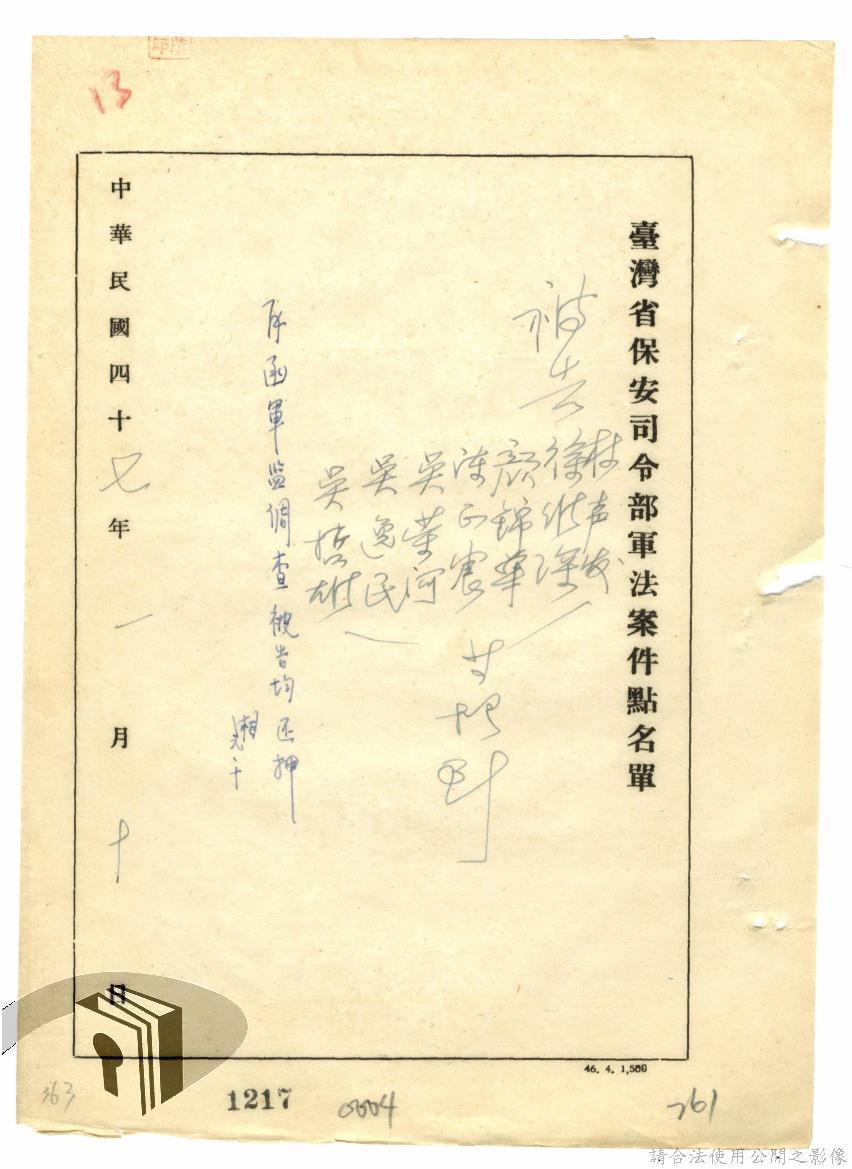 13
臺灣省保安司令部軍法案件點名單
被告
林声发
徐維琛
顏錦華
陳正宸
吳榮河
吳逸民
吳哲雄
廿提到
再函軍监調查被告均还押
湘元.十
中華民國四十七年一月十日
46. 4. 1,500
363
1217
0004
761
請合法使用公開之影像